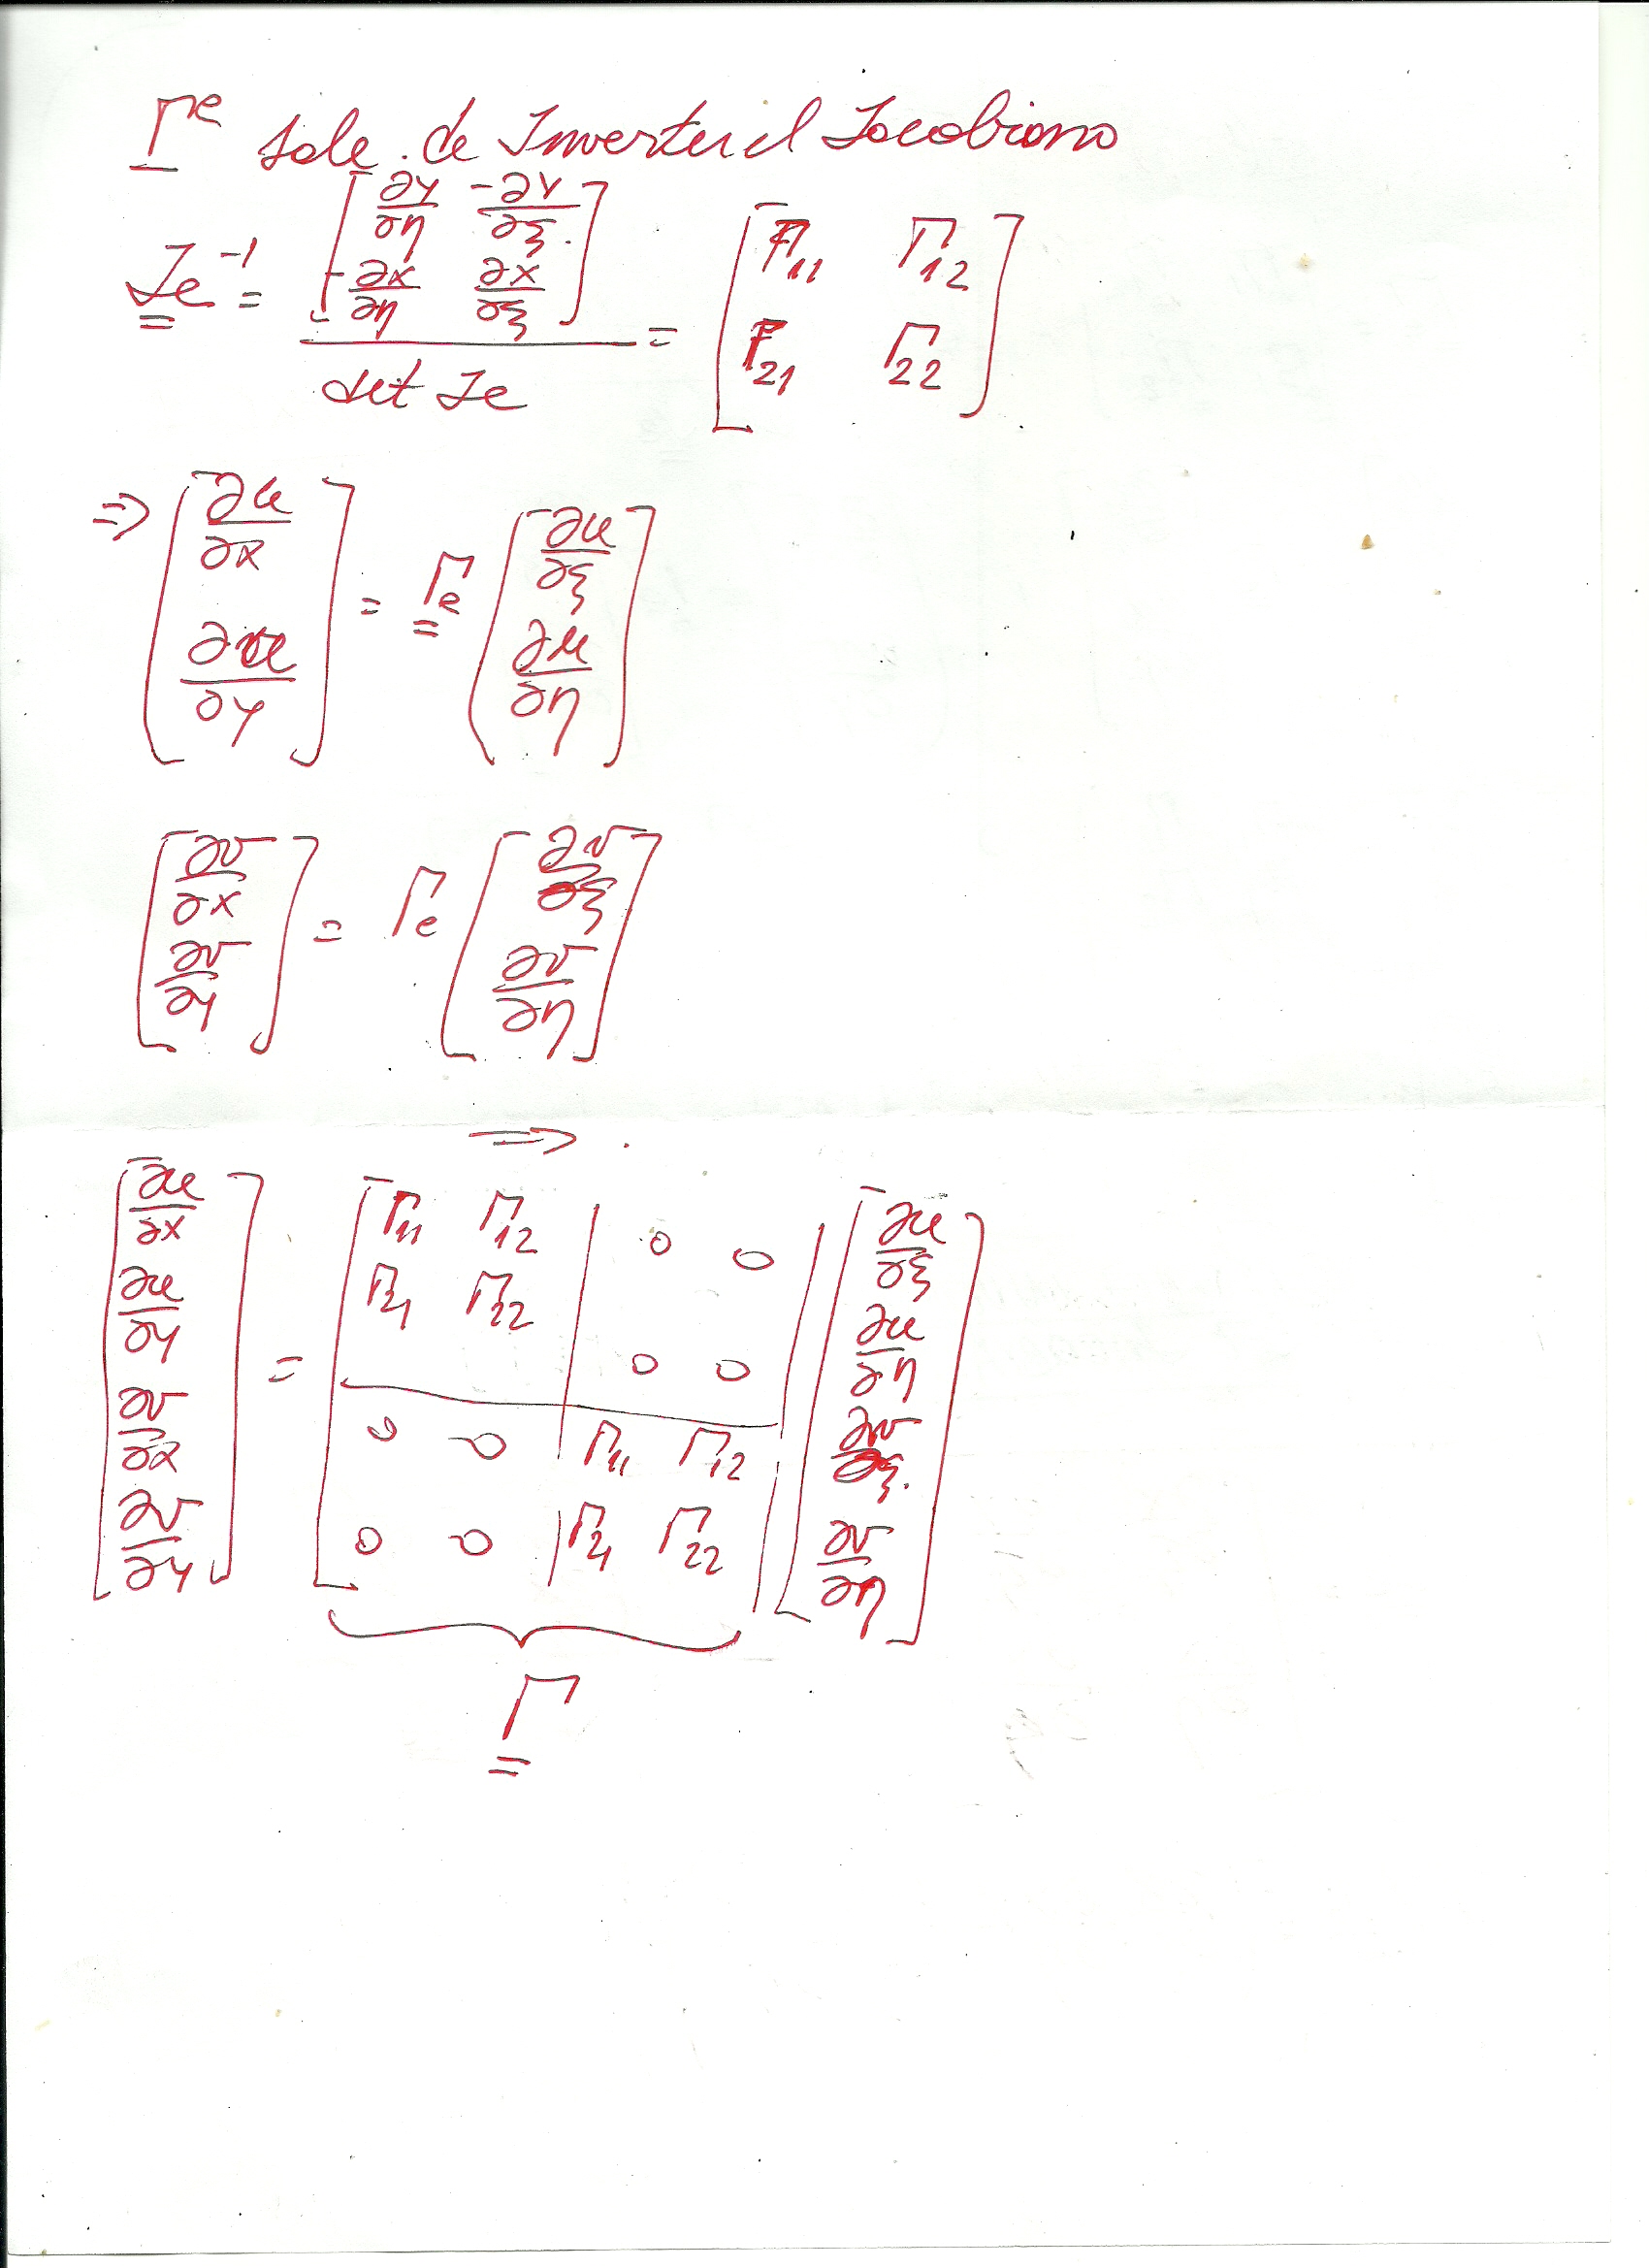 Γᵉ sale de Invertir el Jacobiano
Je⁻¹ = [∂y/∂η -∂y/∂ξ; -∂x/∂η ∂x/∂ξ] / det Je = [Γ11 Γ12; Γ21 Γ22]
⇒ [∂u/∂x; ∂u/∂y] = Γe [∂u/∂ξ; ∂u/∂η]
[∂v/∂x; ∂v/∂y] = Γe [∂v/∂ξ; ∂v/∂η]
⇒
[∂u/∂x; ∂u/∂y; ∂v/∂x; ∂v/∂y] = [Γ11 Γ12 0 0; Γ21 Γ22 0 0; 0 0 Γ11 Γ12; 0 0 Γ21 Γ22] [∂u/∂ξ; ∂u/∂η; ∂v/∂ξ; ∂v/∂η]
Γ